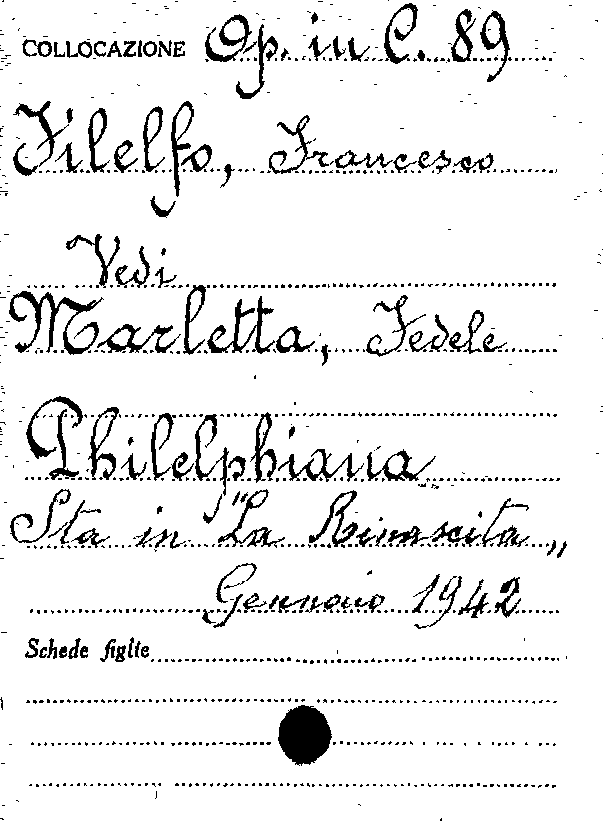 COLLOCAZIONE Op. in C. 89
Filelfo, Francesco
Vedi
Marletta, Fedele
Philelphiana
Sta in "La Rinascita„
Gennaio 1942
Schede figlie